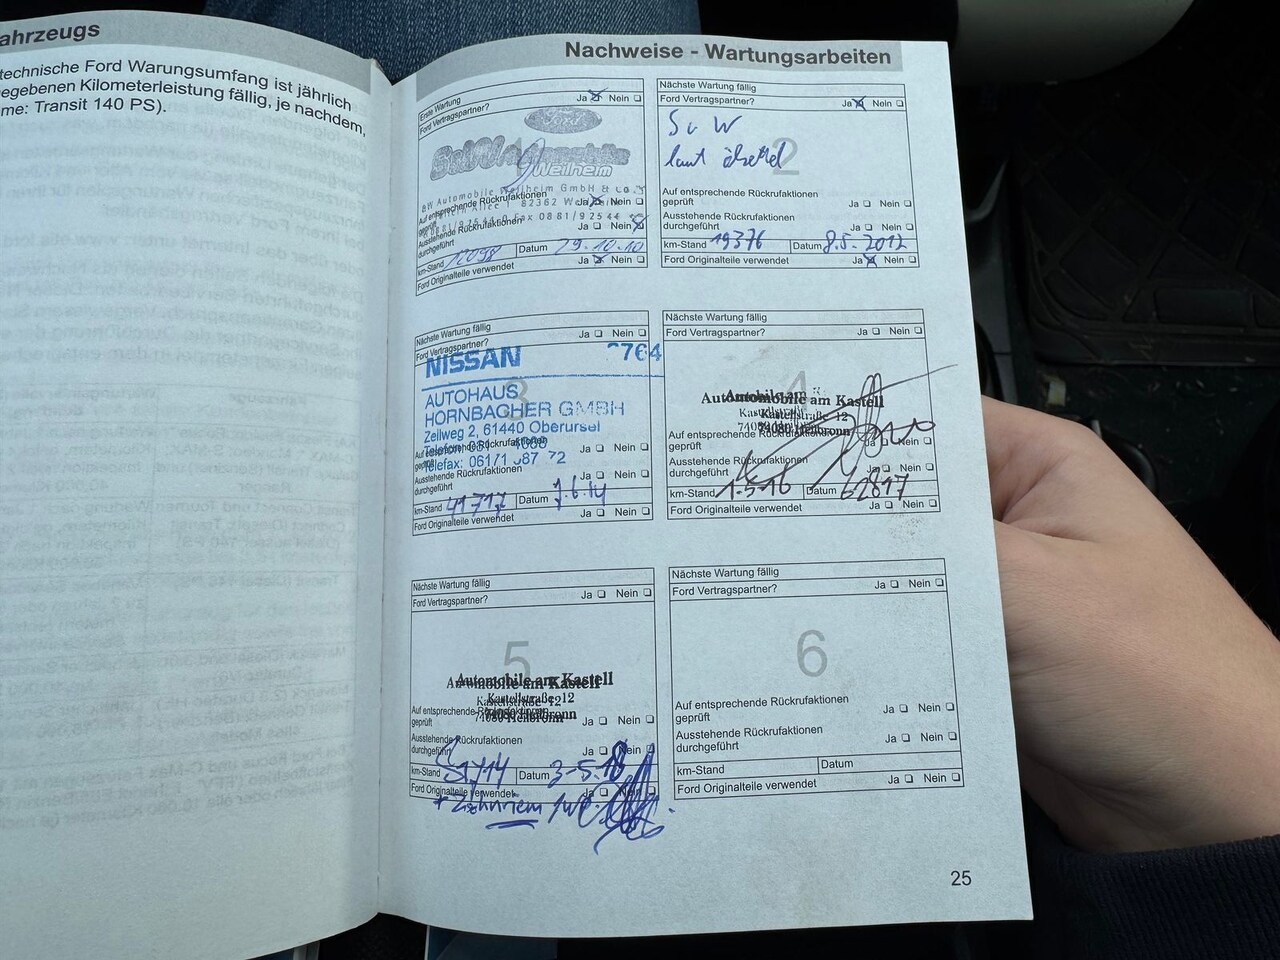 ahrzeugs
technische Ford Warungsumfang ist jährlich
egebenen Kilometerleistung fällig, je nachdem,
me: Transit 140 PS).
Nachweise - Wartungsarbeiten
Erste Wartung
Ford Vertragspartner? Ja Nein
Ford
Weilheim
Automobile Weilheim GmbH & Co.
82362
Auf entsprechende Rückrufaktionen
geprüft Ja Nein
0881/92544-0 Fax 0881/92544
Ausstehende Rückrufaktionen
durchgeführt Nein
km-Stand 12098 Datum 29.10.10
Ford Originalteile verwendet Ja Nein
Nächste Wartung fällig
Ford Vertragspartner? Ja Nein
2
S & W
laut
Auf entsprechende Rückrufaktionen
geprüft Ja Nein
Ausstehende Rückrufaktionen
durchgeführt Ja Nein
km-Stand 19376 Datum 8.5.2012
Ford Originalteile verwendet Ja Nein
Nächste Wartung fällig
Ford Vertragspartner? Ja Nein
NISSAN 764
3
AUTOHAUS
HORNBACHER GMBH
Zeilweg 2, 61440 Oberursel
Auf entsprechende Rückrufaktionen
geprüft Ja Nein
Telefax: 06171
Ausstehende Rückrufaktionen
durchgeführt Ja Nein
km-Stand 41717 Datum 7.6.14
Ford Originalteile verwendet Ja Nein
Nächste Wartung fällig
Ford Vertragspartner? Ja Nein
4
Automobile am Kastell
Kastellstraße 12
74080 Heilbronn
Auf entsprechende Rückrufaktionen
geprüft Ja Nein
Ausstehende Rückrufaktionen
durchgeführt Ja Nein
km-Stand 1-5-16 Datum 62817
Ford Originalteile verwendet Ja Nein
Nächste Wartung fällig
Ford Vertragspartner? Ja Nein
5
Automobile am Kastell
Kastellstraße 12
74080 Heilbronn
Auf entsprechende Rückrufaktionen
geprüft Ja Nein
Ausstehende Rückrufaktionen
durchgeführt Ja Nein
km-Stand Datum 3-5-18
Ford Originalteile verwendet Ja Nein
+ Zahnriem
Nächste Wartung fällig
Ford Vertragspartner? Ja Nein
6
Auf entsprechende Rückrufaktionen
geprüft Ja Nein
Ausstehende Rückrufaktionen
durchgeführt Ja Nein
km-Stand Datum
Ford Originalteile verwendet Ja Nein
25